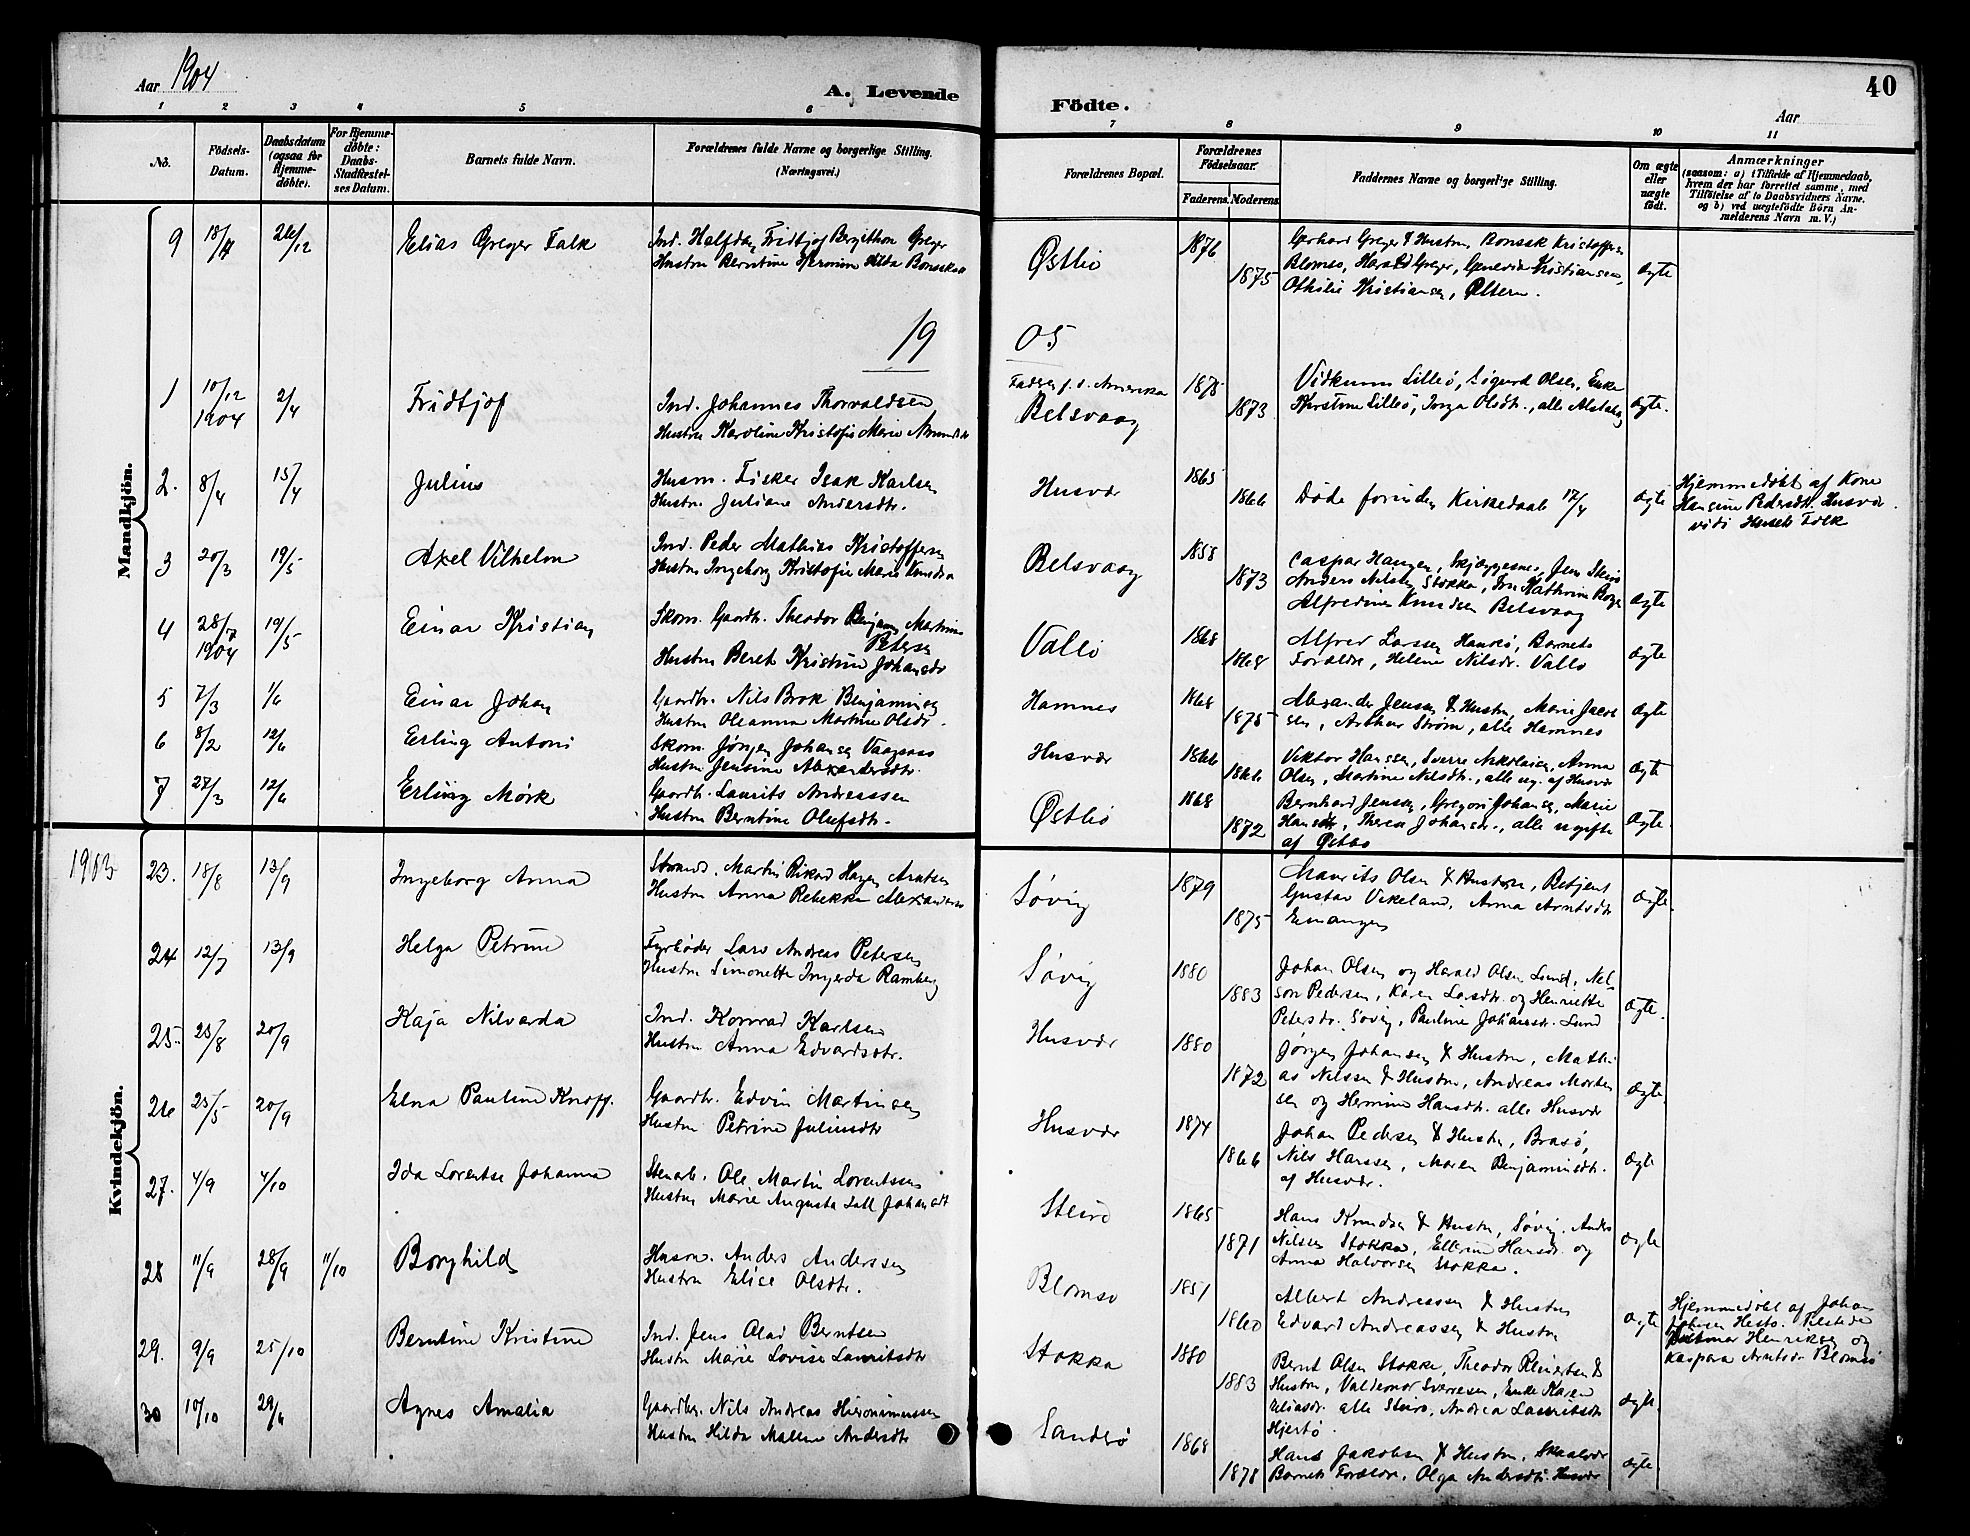 Aar 1904
A. Levende
Födte.
Aar
40
1 2 3 4 5 6 7 8 9 10 11
No.
Födsels-Datum.
Daabsdatum (ogsaa for Hjemmedöbte).
For Hjemmedöbte: Daabs-Stadfæstelses Datum.
Barnets fulde Navn.
Forældrenes fulde Navne og borgerlige Stilling. (Næringsvei.)
Forældrenes Bopæl.
Forældrenes Födselsaar.
Faderens. Moderens.
Faddernes Navne og borgerlige Stilling.
Om ægte eller uægte födt.
Anmærkninger
(saasom: a) i Tilfælde af Hjemmedaab,
hvem der har forrettet samme, med
Tilföielse af to Daabsvidners Navne,
og b) ved uægtefödte Börn An-
melderens Navn m. V.)
Mandkjön.
9 18/11 26/12 Elias Greger Falk
Ind. Halfdan Fridtjof Greger
Hustru Berntine Hermine Hilda
Østbø 1876 1875
Gerhard Greger & Hustru, Kristoffersen
Blomsø, Harald Greger, Kristiansen,
Othilie Kristiansen,
ægte
19 05
1 10/12 1904 2/4 Fridtjof
Ind. Johannes Thorvaldsen
Hustru Karoline Kristofie Marie
Fader f. t. Amerika
Belsvaag 1875 1873
Lilleø, Sigurd Olsen, Enke
Kirstine Lilleø, Inga Olsdtr., alle
ægte.
2. 8/4 15/4 Julius
Husm. Fisker Isak Karlsen
Hustru Juliane Andersdtr.
Husvær 1865 1866
Døde forinden Kirkedaab 17/4
ægte
Hjemmedøbt af Kone
Hansine Pedersdtr. Husvær
Husets Folk
3 20/3 19/5 Axel Vilhelm
Ind. Peder Mathias Kristoffersen
Hustru Ingeborg Kristofie Marie
Belsvaag 1858 1873
Caspar Hansen, Skjæggesnes, Jens
Anders Nilsen Stokka,
Alfredine Knudsen Belsvaag
ægte
4 28/7 1904 19/5 Einar Kristian
Skom. Gaardbr. Theodor Benjam. Martinus
Petersen
Hustru Beret Kristine Johansdtr
Vallø 1868 1868
Alfred Larssen Barnets
Forældre, Helene Nilsdr. Vallø
ægte
5 7/3 1/6 Einar Johan
Gaardbr. Nils Brok Benjaminsen
Hustru Oleanna Martine Olsdr.
Hamnes 1868 1875
Alexander Jensen & Hustru, Marie Jacob
sen, Arthur Strøm, alle Hamnes
ægte
6 8/2 12/6 Erling Antoni
Skom. Jørgen Johansen
Hustru Jensine Alexandersdtr.
Husvær 1866 1866
Viktor Hanssen, Sverre Nikolaisen, Anna
Olsen, Martine Nilsdtr., alle ug. af Husvær
ægte
7 27/3 12/6 Erling Mørk
Gaardbr. Laurits Andreassen
Hustru Berntine Olufsdtr.
Østbø 1868 1872
Bernhard Jensen, Johansen, Marie
Hansdtr., Johansdr., alle ugifte
af Østbø
ægte.
Kvindekjön.
1903
23. 18/8 13/9 Ingeborg Anna
Martin Rikard Hagen Arntsen
Hustru Anna Rebekka
Søvig 1879 1875
Maurits Olsen & Hustru, Betjent
Gustav Vikeland, Anna Arntsdtr
ægte.
24 12/7 13/9 Helga Petrine
Fyrbøder Lars Andreas Petersen
Hustru Simonette Ingerda Ramberg
Søvig 1880 1883
Johan Olsen og Harald Olsen Lund, Nel-
son Pedersen, Karen Larsdtr. og Henriette
Petersdr. Søvig, Pauline Johansdr. Lund
ægte.
25. 23/8 20/9 Kaja Nilvarda
Ind. Konrad Karlsen
Hustru Anna Edvardsdtr.
Husvær 1880 1872
Jørgen Johansen & Hustru, Mathi
as Nilsen & Hustru, Andreas Morten
sen og Hermine Hansdtr. alle Husvær
ægte.
26 25/5 20/9 Elna Pauline Knoff.
Gaardbr. Edvin Martinsen
Hustru Petrine Juliusdtr
Husvær 1874 1866
Johan Pedersen & Hustru, Brasø,
Nils Hanssen, Maren Benjaminsdtr.
af Husvær.
ægte
27. 4/9 4/10 Ida Lorentse Johanna
Stenarb. Ole Martin Lorentsen
Hustru Marie Augusta Johansdt
Steirø 1865 1871
Hans Knudsen & Hustru, Søvig. Anders
Nilsen Stokka, Ellerine Hansdr. og
Anna Halvorsen Stokka.
ægte
28 11/9 28/9 11/10 Borghild
Husm. Anders Anderssen
Hustru Elise Olsdtr.
Blomsø 1851 1860
Albert Andreassen & Hustru
Edvard Andreassen & Hustru
ægte
Hjemmedøbt af Johan
Henriksen og
Kaspara Arntsdr. Blomsø
29. 9/9 25/10 Berntine Kristine
Ind. Jens Olai Berntsen
Hustru Marie Lovise Lauritsdtr
Stokka 1880 1883
Bernt Olsen Stokka, Theodor Reinertsen &
Hustru, Valdemar Sverresen, Enke Karen
Eliasdr. alle Steirø, Andrea Lauritsdtr
Hjertø.
ægte.
30 10/10 29/4 Agnes Amalia
Gaardbr. Nils Andreas Hieronimussen
Hustru Hilda Andersdtr
Sandsø 1868 1878
Hans Jakobsen & Hustru, Skaalvær
Barnets Forældre, Olga Andersdtr. Husvær
ægte